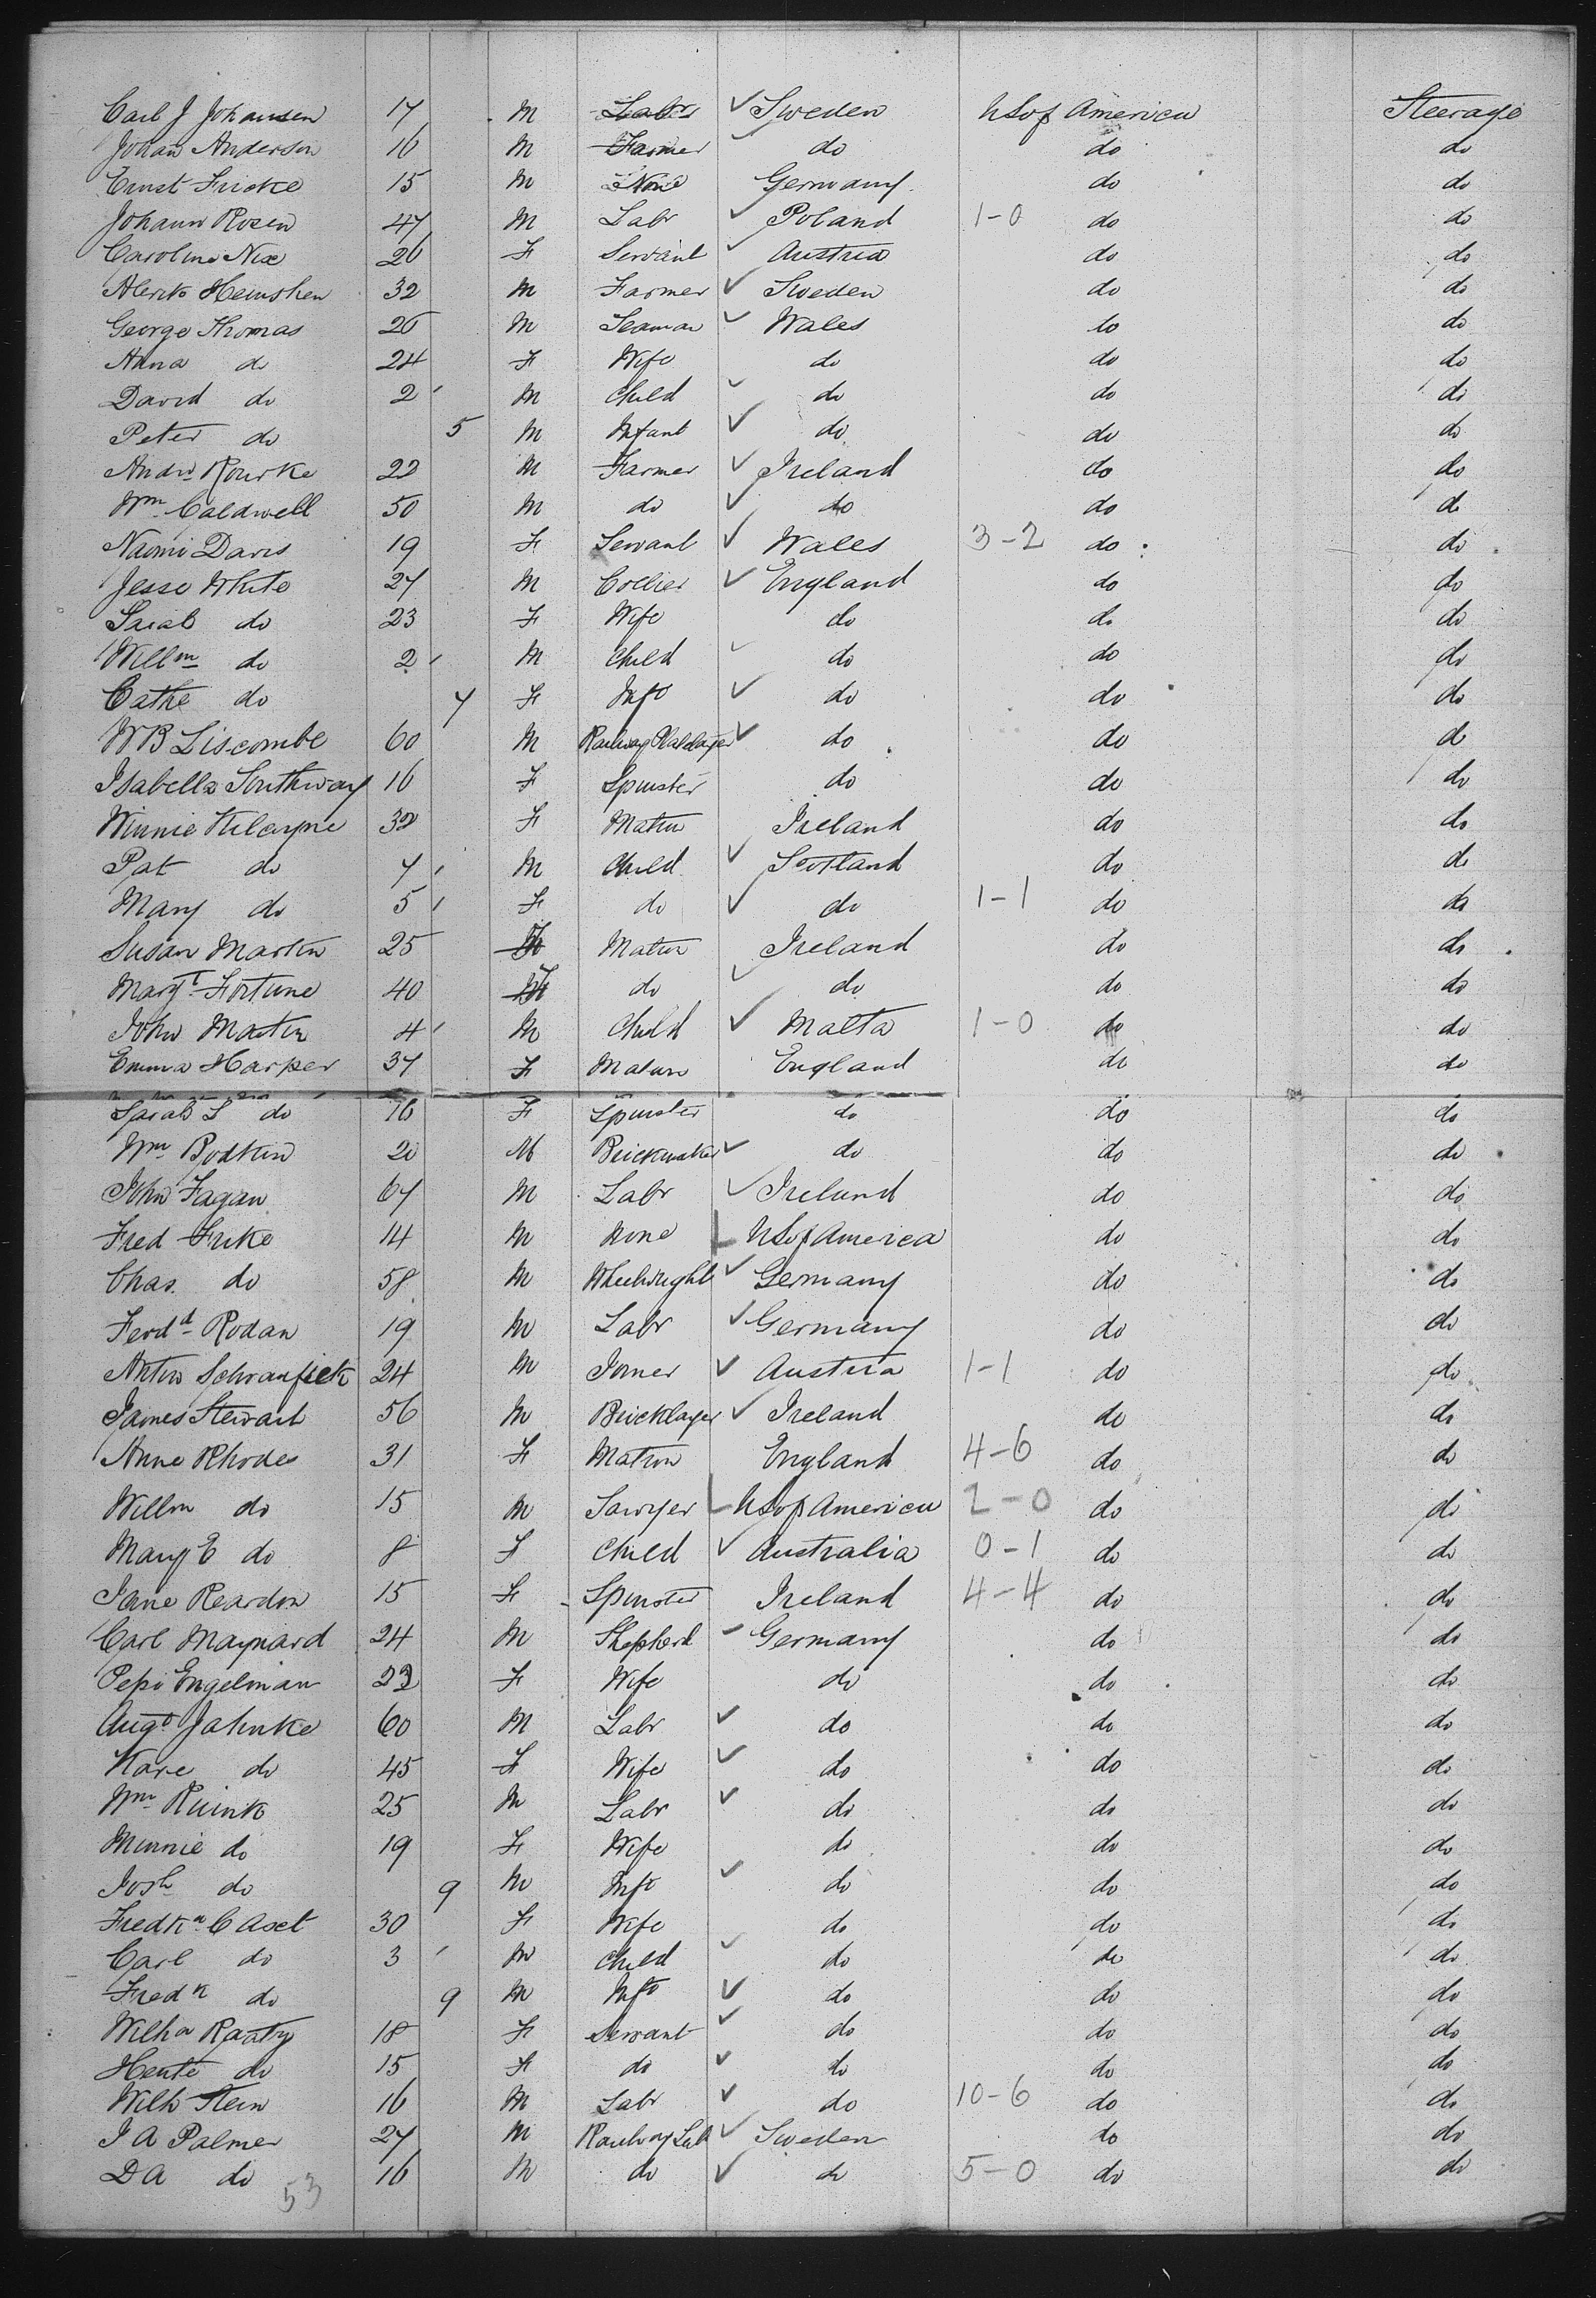 Carl J Johansen 17 M Labr Sweden US of America Steerage
Johan Anderson 16 M Farmer do do do
Ernst Fricke 15 M None Germany do do
Johann Rosen 47 M Labr Poland 1-0 do do
Caroline Nix 26 F Servant Austria do do
32 M Farmer Sweden do do
George Thomas 26 M Seaman Wales do do
Anna do 24 F Wife do do do
David do 2 M Child do do do
Peter do 5 M Infant do do do
Andw Rourke 22 M Farmer Ireland do do
Wm Caldwell 50 M do do do do
Naomi Davis 19 F Servant Wales 3-2 do do
Jesse White 27 M Collier England do do
Sarah do 23 F Wife do do do
Willm do 2 M Child do do do
Cathe do 7 F Inft do do do
W B Liscombe 60 M Railway Platelayer do do do
Isabella Southway 16 F Spinster do do do
Winnie 32 F Matrn Ireland do do
Pat do 7 M Child Scotland do do
Mary do 5 F do do 1-1 do do
Susan Martin 25 F Matrn Ireland do do
Margt Fortune 40 F do do do do
John Martin 4 M Child Malta 1-0 do do
Emma Harper 37 F Matrn England do do
Sarah S do 16 F Spinster do do do
Wm Bodkin 20 M Brickmaker do do do
John Fagan 67 M Labr Ireland do do
Fred Frike 14 M None US of America do do
Chas. do 58 M Wheelwright Germany do do
Ferdd Rodan 19 M Labr Germany do do
Anton 24 M Joiner Austria 1-1 do do
James Stewart 56 M Bricklayer Ireland do do
Anne Rhodes 31 F Matron England 4-6 do do
Willm do 15 M Sawyer US of America 2-0 do do
Mary E do 8 F Child Australia 0-1 do do
Jane Reardon 15 F Spinster Ireland 4-4 do do
Carl Maynard 24 M Shepherd Germany do do
Pepi Engelman 22 F Wife do do do
Augt Jahnke 60 M Labr do do do
Kare do 45 F Wife do do do
Wm 25 M Labr do do do
Minnie do 19 F Wife do do do
Josh do 9 M Inft do do do
Fredka C Axet 30 F Wife do do do
Carl do 3 M Child do do do
Fredk do 9 M Inft do do do
Wilha Raatz 18 F Servant do do do
Hente do 15 F do do do do
Wilh Stein 16 M Labr do 10-6 do do
J A Palmer 27 M Railway Lab Sweden do do
D A do 16 M do do 5-0 do do
53